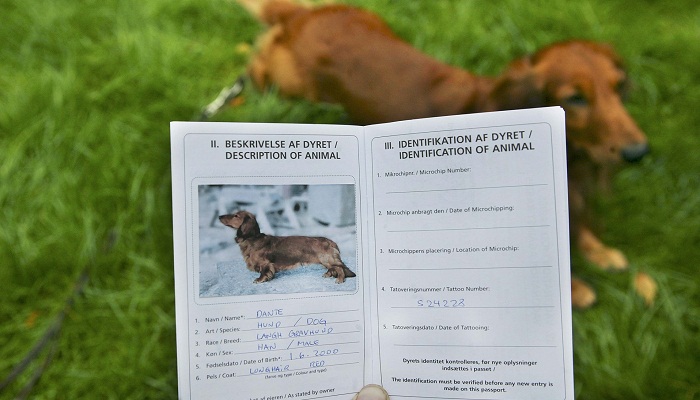 II. BESKRIVELSE AF DYRET /
DESCRIPTION OF ANIMAL
1. Navn / Name*: DANTE
2. Art / Species: HUND / DOG
3. Race / Breed: LANGH GRAVHUND
4. Køn / Sex: HAN / MALE
5. Fødselsdato / Date of Birth*: 1.6-2000
6. Pels / Coat: LONGHAIR RED
(Farve og type / Colour and type)
af ejeren / As stated by owner
III. IDENTIFIKATION AF DYRET /
IDENTIFICATION OF ANIMAL
1. Mikrochipnr. / Microchip Number:
2. Microchip anbragt den / Date of Microchipping:
3. Microchippens placering / Location of Microchip:
4. Tatoveringsnummer / Tattoo Number:
S24228
5. Tatoveringsdato / Date of Tattooing:
Dyrets identitet kontrolleres, før nye oplysninger
indsættes i passet /
The identification must be verified before any new entry is
made on this passport.